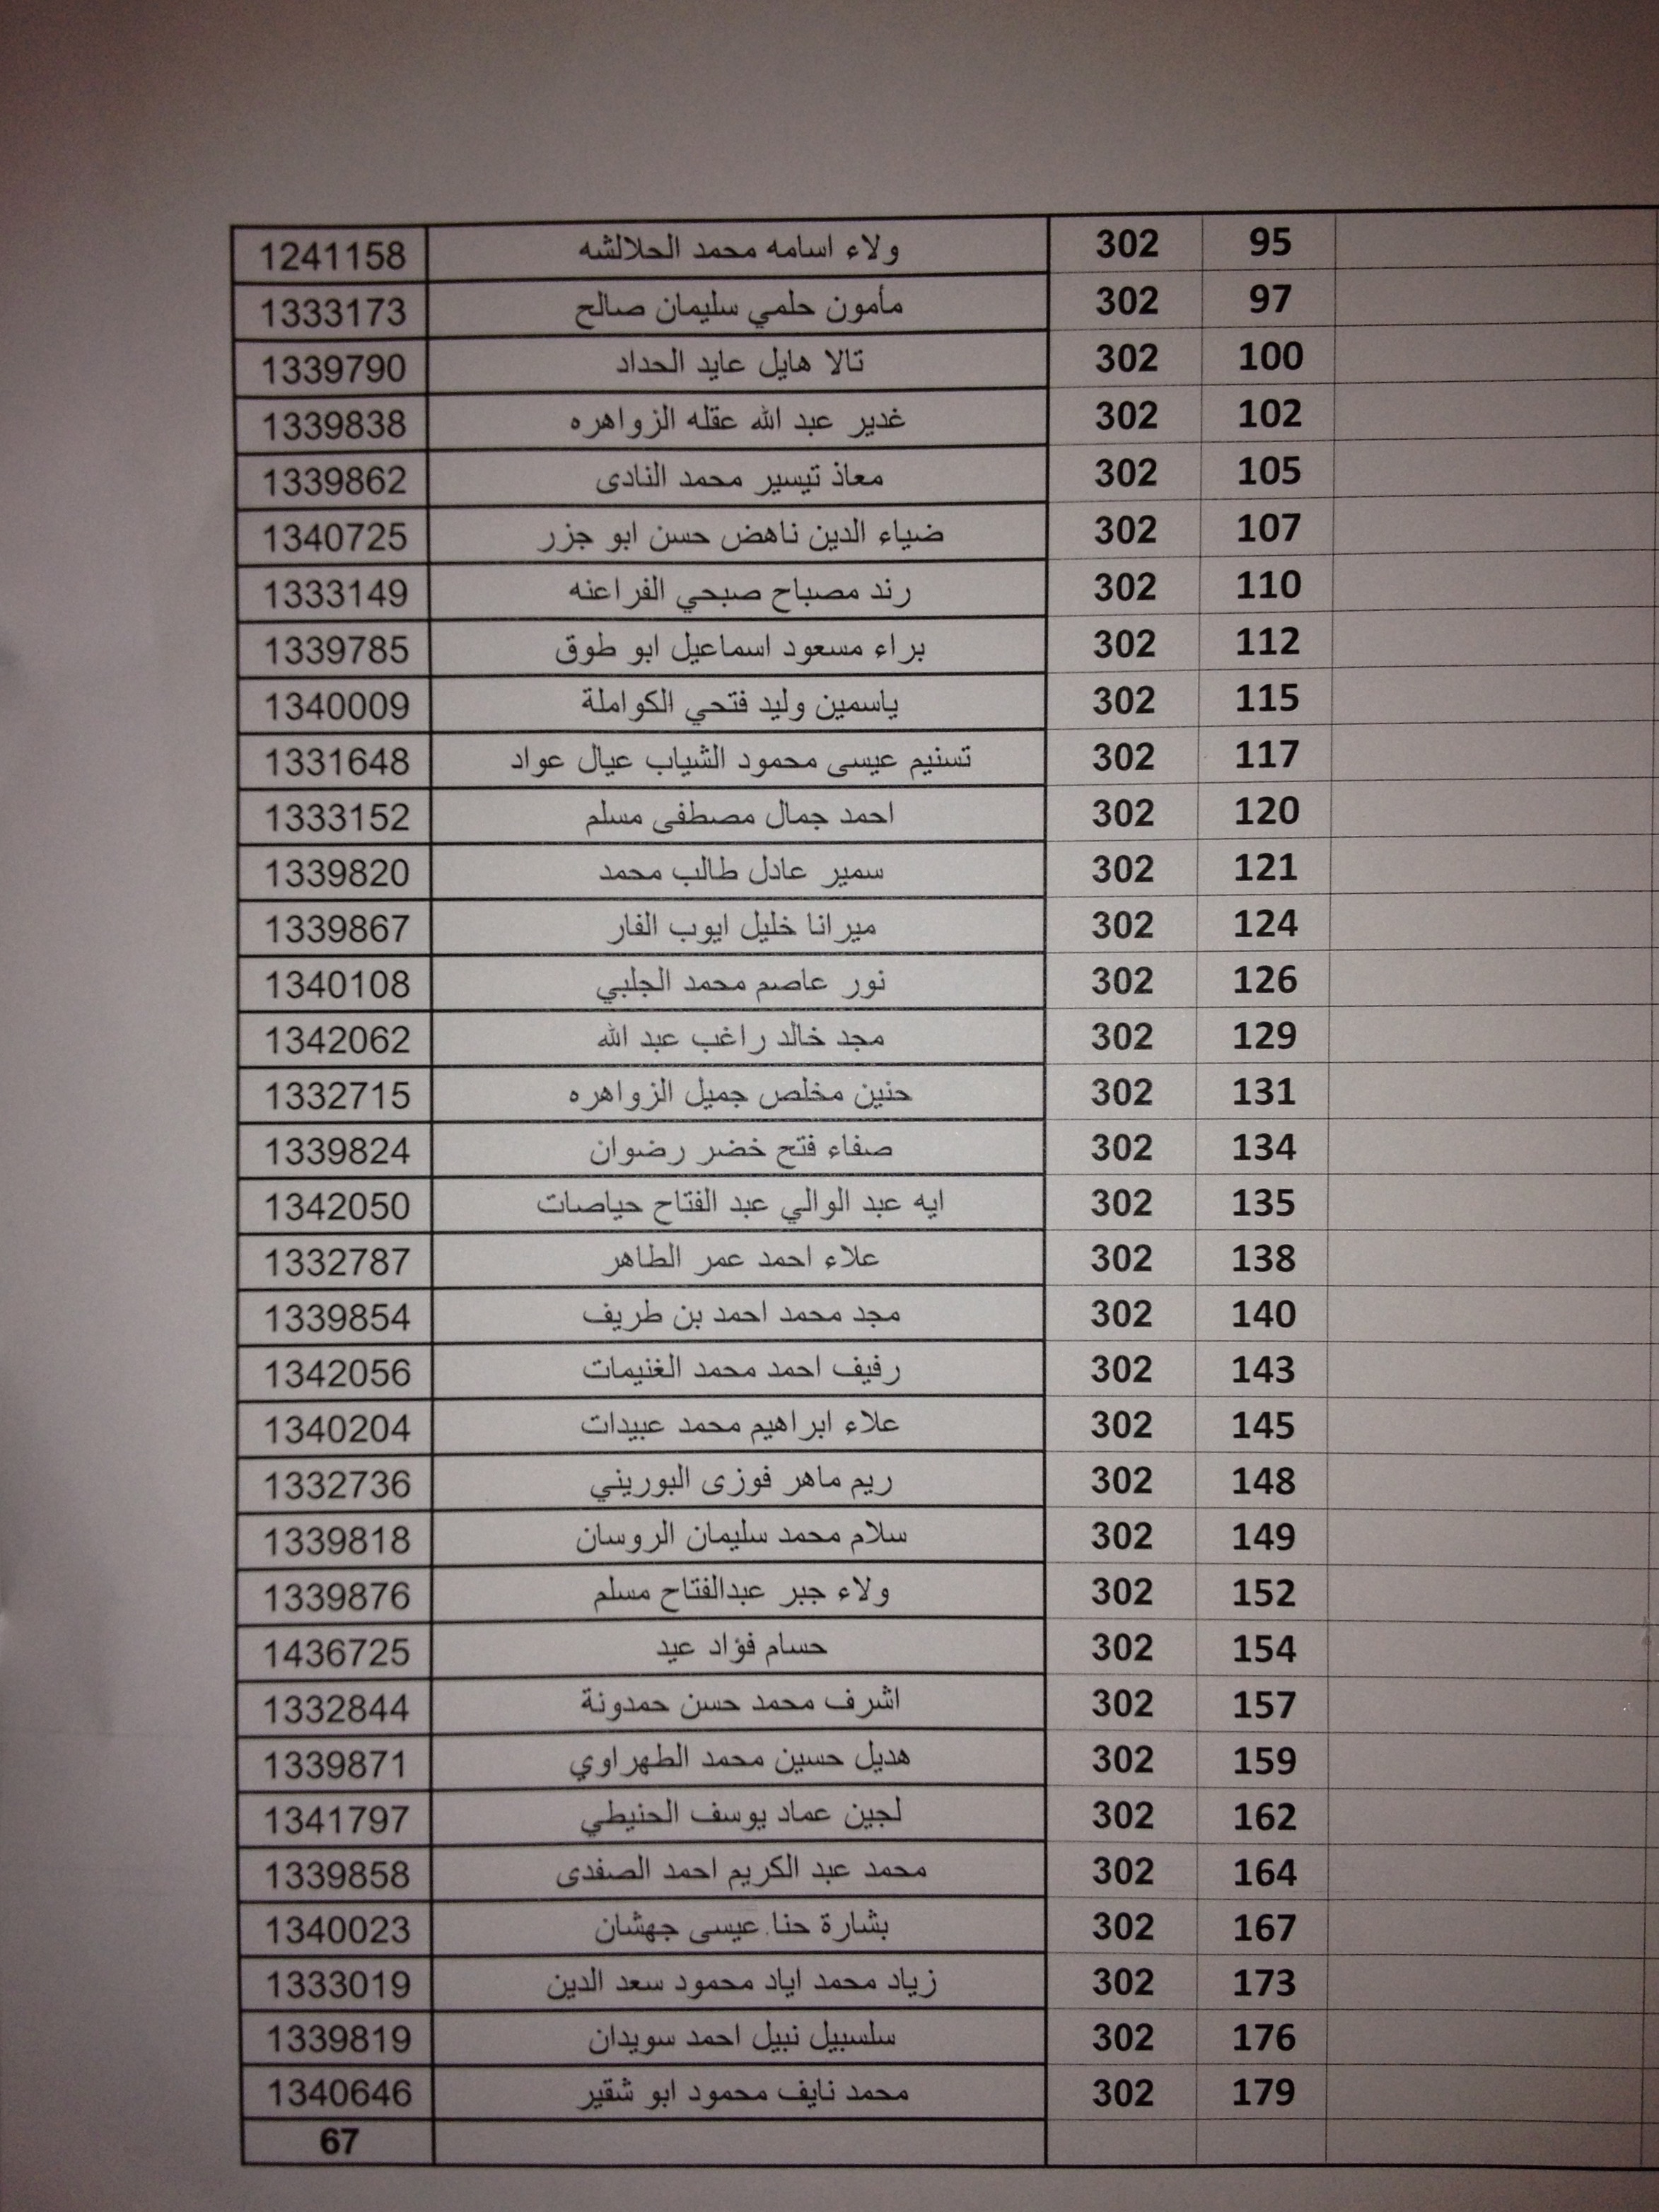 1241158 ولاء اسامه محمد الحلالشه 302 95
1333173 مأمون حلمي سليمان صالح 302 97
1339790 تالا هايل عايد الحداد 302 100
1339838 غدير عبد الله عقله الزواهره 302 102
1339862 معاذ تيسير محمد النادى 302 105
1340725 ضياء الدين ناهض حسن ابو جزر 302 107
1333149 رند مصباح صبحي الفراعنه 302 110
1339785 براء مسعود اسماعيل ابو طوق 302 112
1340009 ياسمين وليد فتحي الكواملة 302 115
1331648 تسنيم عيسى محمود الشياب عيال عواد 302 117
1333152 احمد جمال مصطفى مسلم 302 120
1339820 سمير عادل طالب محمد 302 121
1339867 ميرانا خليل ايوب الفار 302 124
1340108 نور عاصم محمد الجلبي 302 126
1342062 مجد خالد راغب عبد الله 302 129
1332715 حنين مخلص جميل الزواهره 302 131
1339824 صفاء فتح خضر رضوان 302 134
1342050 ايه عبد الوالي عبد الفتاح حياصات 302 135
1332787 علاء احمد عمر الطاهر 302 138
1339854 مجد محمد احمد بن طريف 302 140
1342056 رفيف احمد محمد الغنيمات 302 143
1340204 علاء ابراهيم محمد عبيدات 302 145
1332736 ريم ماهر فوزى البوريني 302 148
1339818 سلام محمد سليمان الروسان 302 149
1339876 ولاء جبر عبدالفتاح مسلم 302 152
1436725 حسام فؤاد عيد 302 154
1332844 اشرف محمد حسن حمدونة 302 157
1339871 هديل حسين محمد الطهراوي 302 159
1341797 لجين عماد يوسف الحنيطي 302 162
1339858 محمد عبد الكريم احمد الصفدى 302 164
1340023 بشارة حنا عيسى جهشان 302 167
1333019 زياد محمد اياد محمود سعد الدين 302 173
1339819 سلسبيل نبيل احمد سويدان 302 176
1340646 محمد نايف محمود ابو شقير 302 179
67